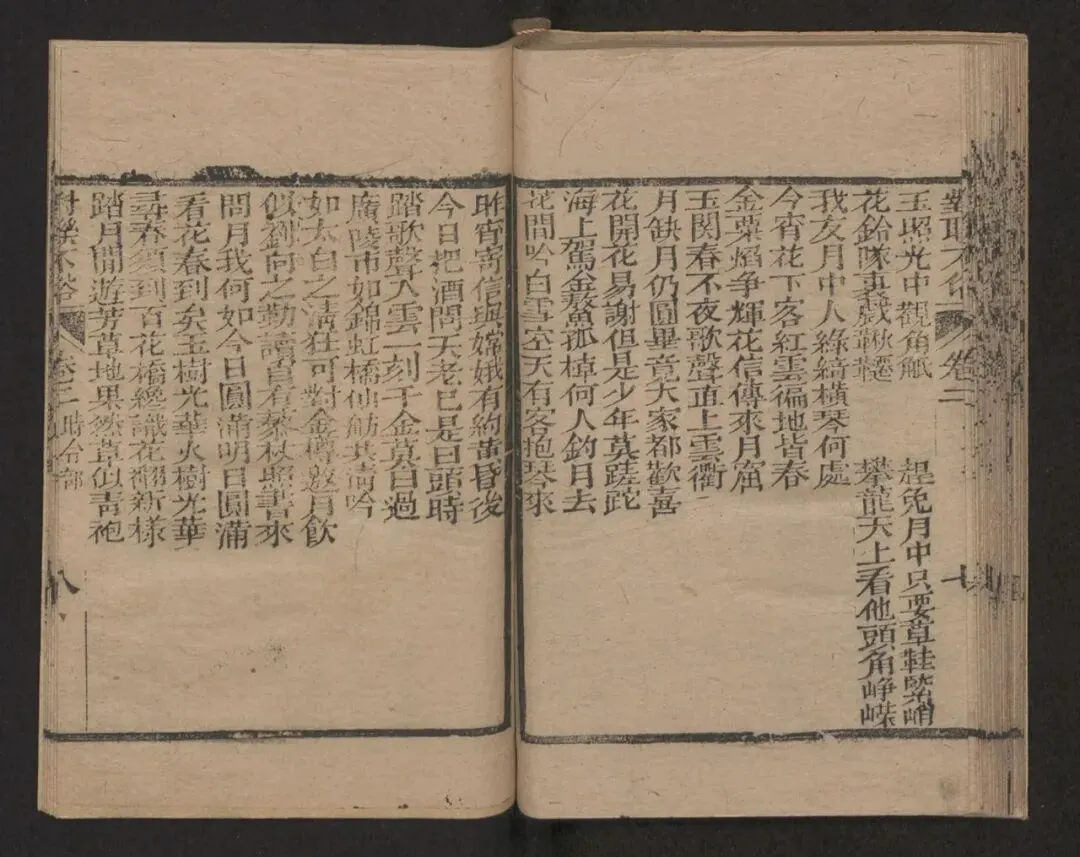 對聯不俗 卷二 七
玉照光中觀角觝 趕兔月中只要草鞋緊峭
花鈴隊裏戲鞦韆 攀龍天上看他頭角崢嶸
我友月中人綠綺橫琴何處
今宵花下客紅雲徧地皆春
金粟焰争輝花信傳來月窟
玉関春不夜歌聲直上雲衢
月缺月仍圓畢竟大家都歡喜
花開花易謝但是少年莫蹉跎
海上駕金鰲孤棹何人釣月去
花間吟白雪空天有客抱琴來
昨宵寄信與嫦娥有約黃昏後
今日把酒問天老已是日頭時
踏歌聲入雲一刻千金莫白過
廣陵市如錦虹橋仙舫共淸吟
如太白之淸狂可對金樽邀月飲
似劉向之勤讀自有藜杖照書來
問月我何如今日圓滿明日圓滿
看花春到矣玉樹光華火樹光華
尋春須到百花橋纔識花翻新樣
踏月閒遊芳草地果然草似靑袍
對聯不俗 卷二 時令部 八